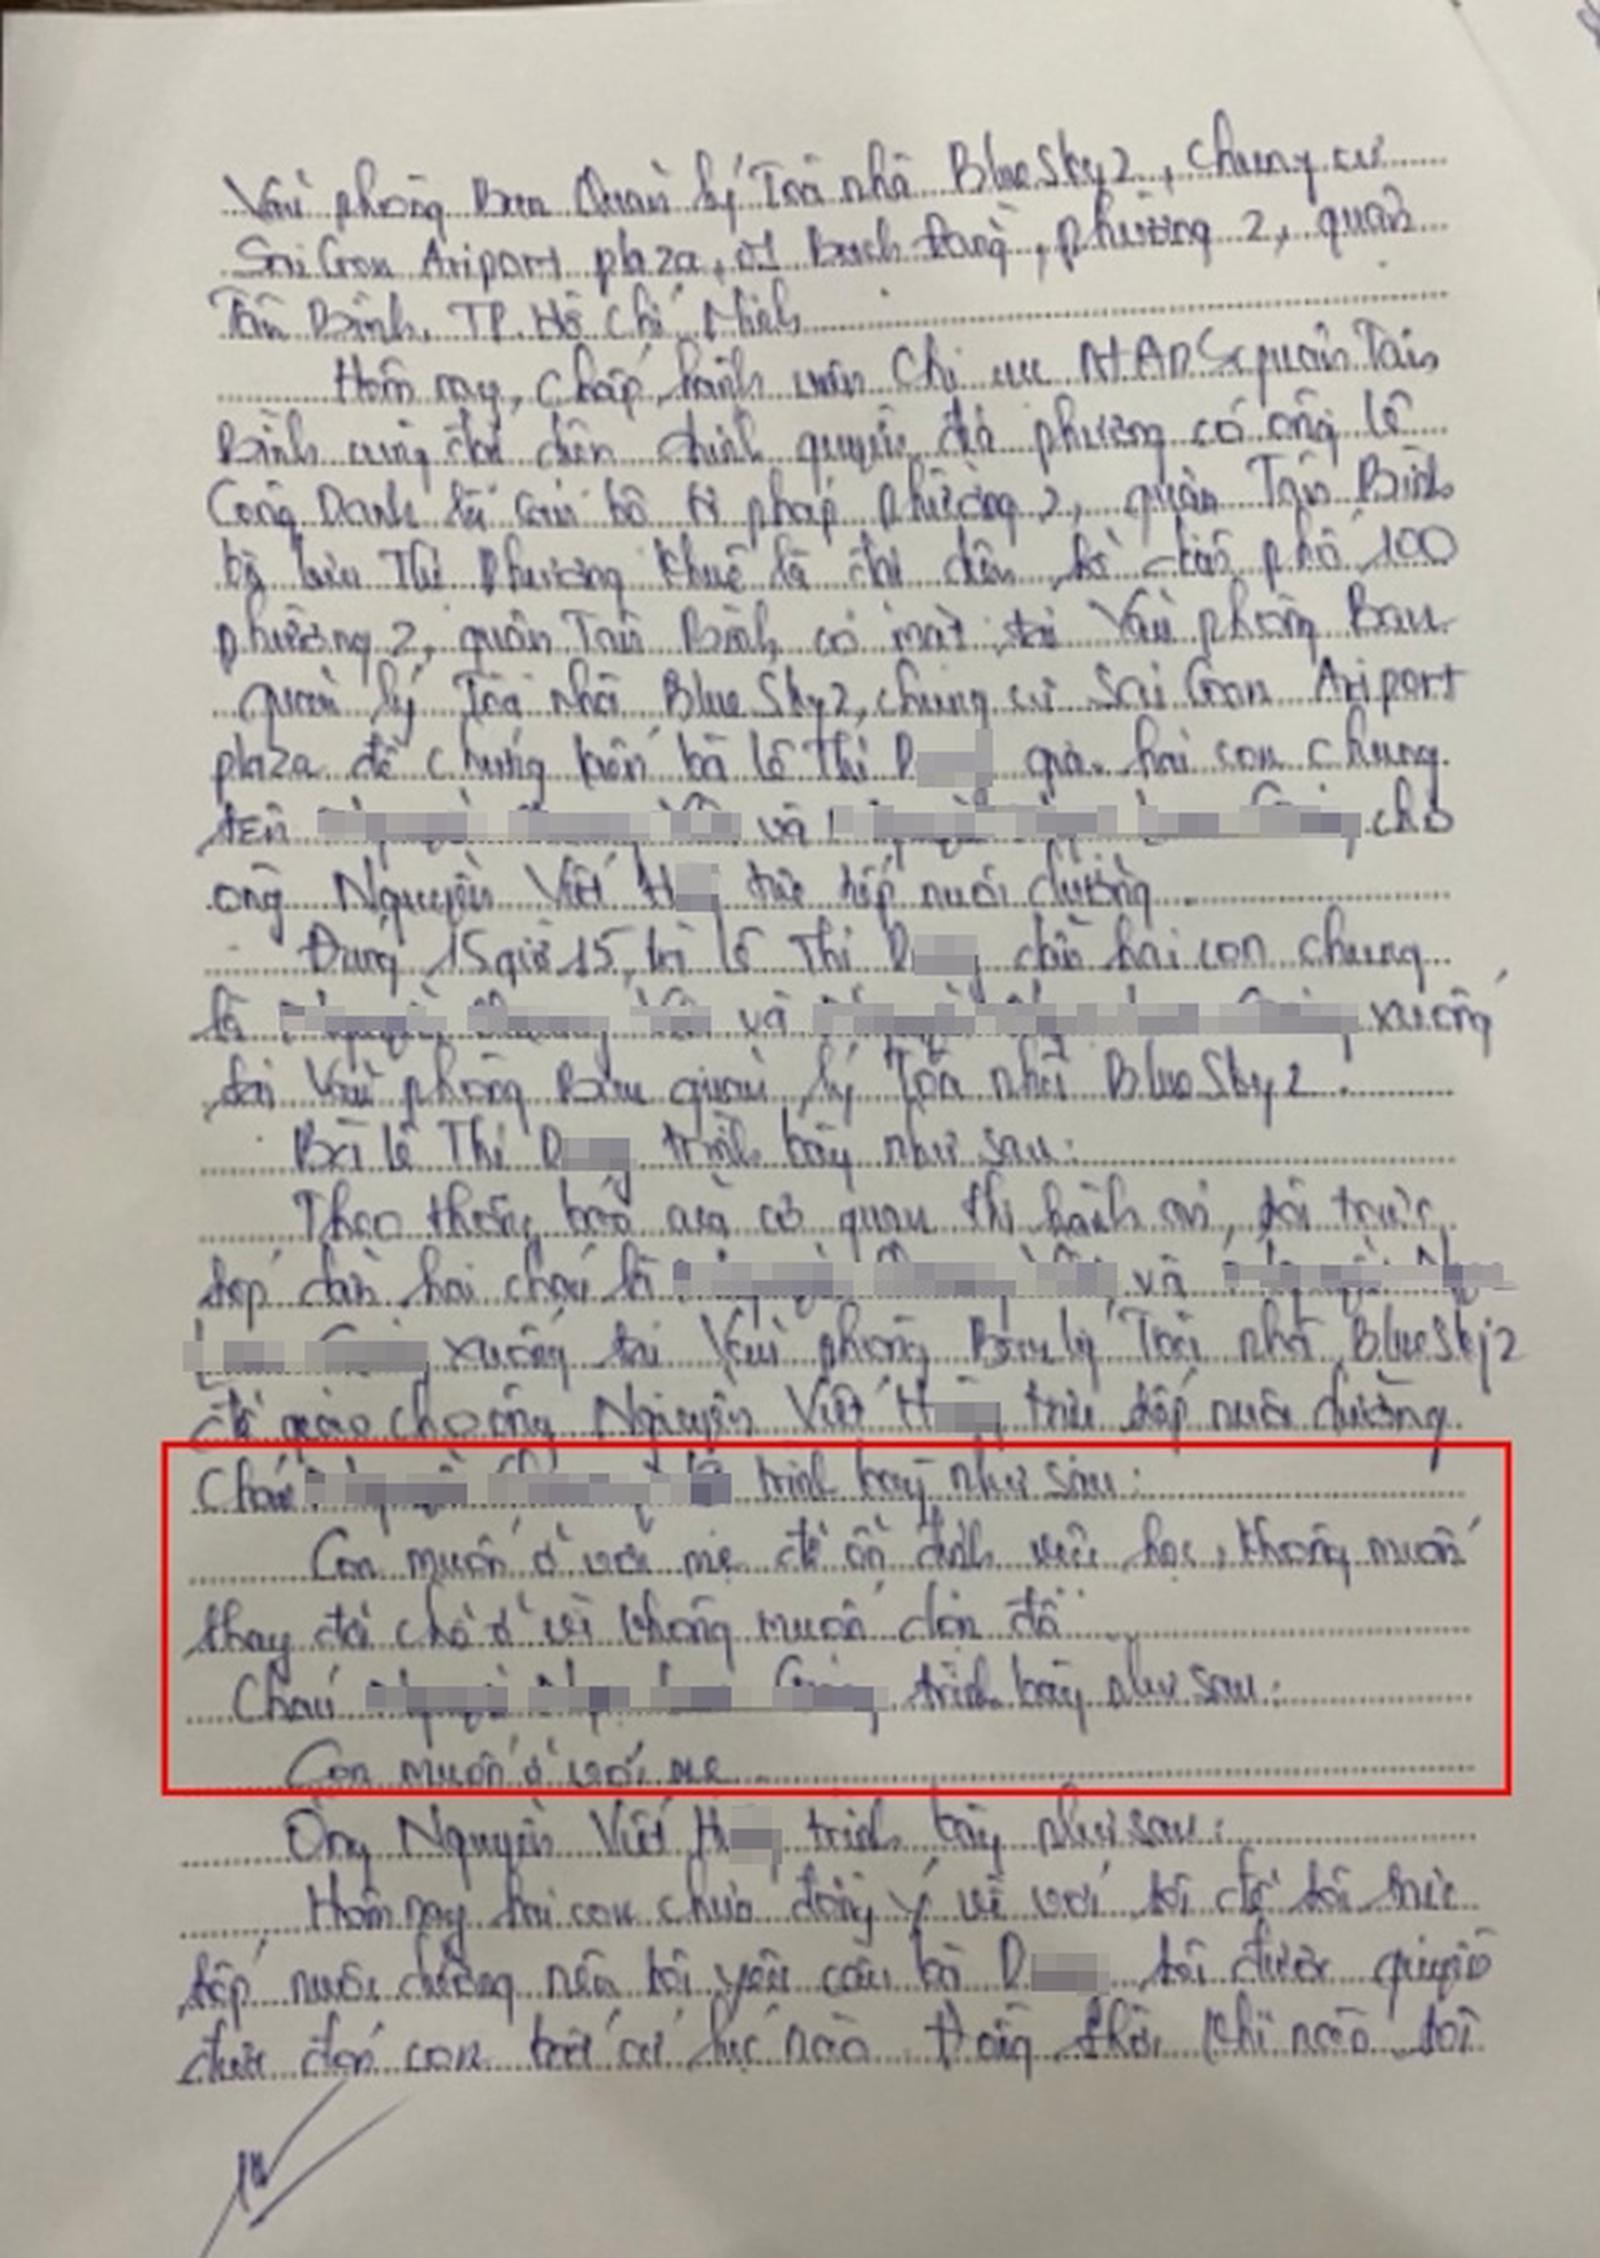 Văn phòng Ban Quản lý Toà nhà BlueSky2, chung cư
Sài Gòn Ariport plaza, 01 Bạch Đằng, phường 2, quận
Tân Bình, TP. Hồ Chí Minh
Hôm nay, Chấp hành viên Chi cục THADS quận Tân
Bình cùng đại diện chính quyền địa phương có ông Lê
Công Danh là cán bộ tư pháp phường 2, quận Tân Bình
bà Lưu Thị Phương Khuê là đại diện tổ dân phố 100
phường 2, quận Tân Bình có mặt tại Văn phòng Ban
quản lý Toà nhà BlueSky2, chung cư Sài Gòn Ariport
plaza để chứng kiến bà Lê Thị D giao hai con chung
tên và cho
ông Nguyễn Viết H trực tiếp nuôi dưỡng
Đúng 15 giờ 15, bà Lê Thị D dẫn hai con chung
là và xuống
tại Văn phòng Ban quản lý Toà nhà BlueSky2.
Bà Lê Thị D trình bày như sau:
Theo thông báo của cơ quan thi hành án, tôi trực
tiếp dẫn hai cháu là và
xuống tại Văn phòng Ban lý Toà nhà BlueSky2
để giao cho ông Nguyễn Viết H trực tiếp nuôi dưỡng.
Cháu trình bày như sau:
Con muốn ở với mẹ để ổn định việc học, không muốn
thay đổi chỗ ở vì không muốn dọn đồ
Cháu trình bày như sau:
Con muốn ở với mẹ
Ông Nguyễn Viết H trình bày như sau:
Hôm nay hai con chưa đồng ý về với tôi để tôi trực
tiếp nuôi dưỡng nên tôi yêu cầu bà D tôi được quyền
được đón con bất cứ lúc nào. Đồng thời khi nào tôi